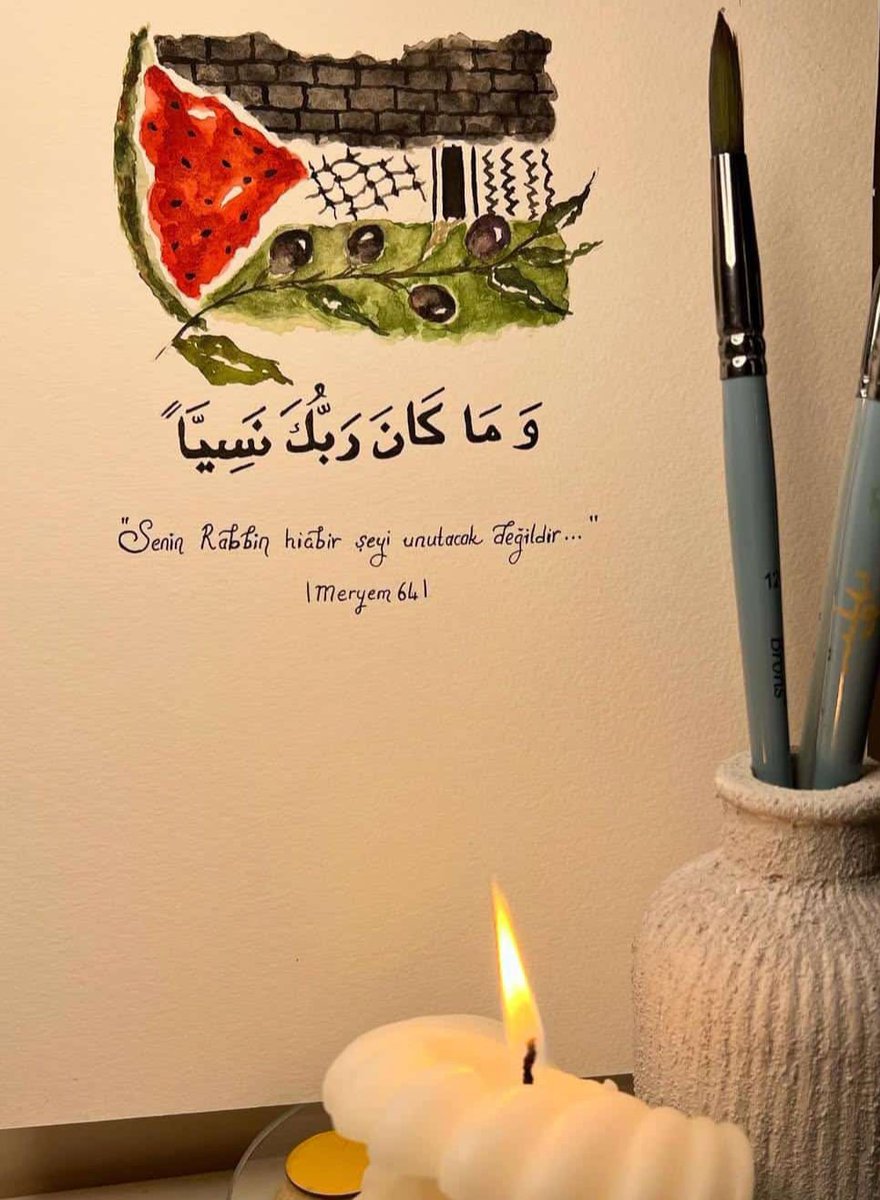 وَ مَا كَانَ رَبُّكَ نَسِيًّا
"Senin Rabbin hiçbir şeyi unutacak değildir..."
|Meryem 64|
12
brons